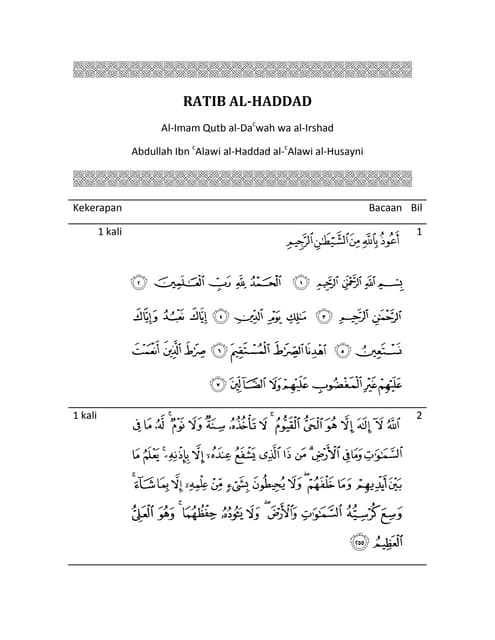 RATIB AL-HADDAD
Al-Imam Qutb al-Daᶜwah wa al-Irshad
Abdullah Ibn ᶜAlawi al-Haddad al-ᶜAlawi al-Husayni
Kekerapan Bacaan Bil
1 kali أَعُوذُ بِاللَّهِ مِنَ الشَّيْطَٰنِ الرَّجِيمِ 1
بِسْمِ اللَّهِ الرَّحْمَٰنِ الرَّحِيمِ ﴿١﴾ الْحَمْدُ لِلَّهِ رَبِّ الْعَٰلَمِينَ ﴿٢﴾
الرَّحْمَٰنِ الرَّحِيمِ ﴿٣﴾ مَٰلِكِ يَوْمِ الدِّينِ ﴿٤﴾ إِيَّاكَ نَعْبُدُ وَإِيَّاكَ
نَسْتَعِينُ ﴿٥﴾ اهْدِنَا الصِّرَٰطَ الْمُسْتَقِيمَ ﴿٦﴾ صِرَٰطَ الَّذِينَ أَنْعَمْتَ
عَلَيْهِمْ غَيْرِ الْمَغْضُوبِ عَلَيْهِمْ وَلَا الضَّالِّينَ ﴿٧﴾
1 kali اللَّهُ لَا إِلَٰهَ إِلَّا هُوَ الْحَيُّ الْقَيُّومُ ۚ لَا تَأْخُذُهُ سِنَةٌ وَلَا نَوْمٌ ۚ لَهُ مَا فِي 2
السَّمَٰوَٰتِ وَمَا فِي الْأَرْضِ ۗ مَن ذَا الَّذِي يَشْفَعُ عِندَهُ إِلَّا بِإِذْنِهِ ۚ يَعْلَمُ مَا
بَيْنَ أَيْدِيهِمْ وَمَا خَلْفَهُمْ ۖ وَلَا يُحِيطُونَ بِشَيْءٍ مِّنْ عِلْمِهِ إِلَّا بِمَا شَاءَ ۚ
وَسِعَ كُرْسِيُّهُ السَّمَٰوَٰتِ وَالْأَرْضَ ۖ وَلَا يَئُودُهُ حِفْظُهُمَا ۚ وَهُوَ الْعَلِيُّ
الْعَظِيمُ ﴿٢٥٥﴾